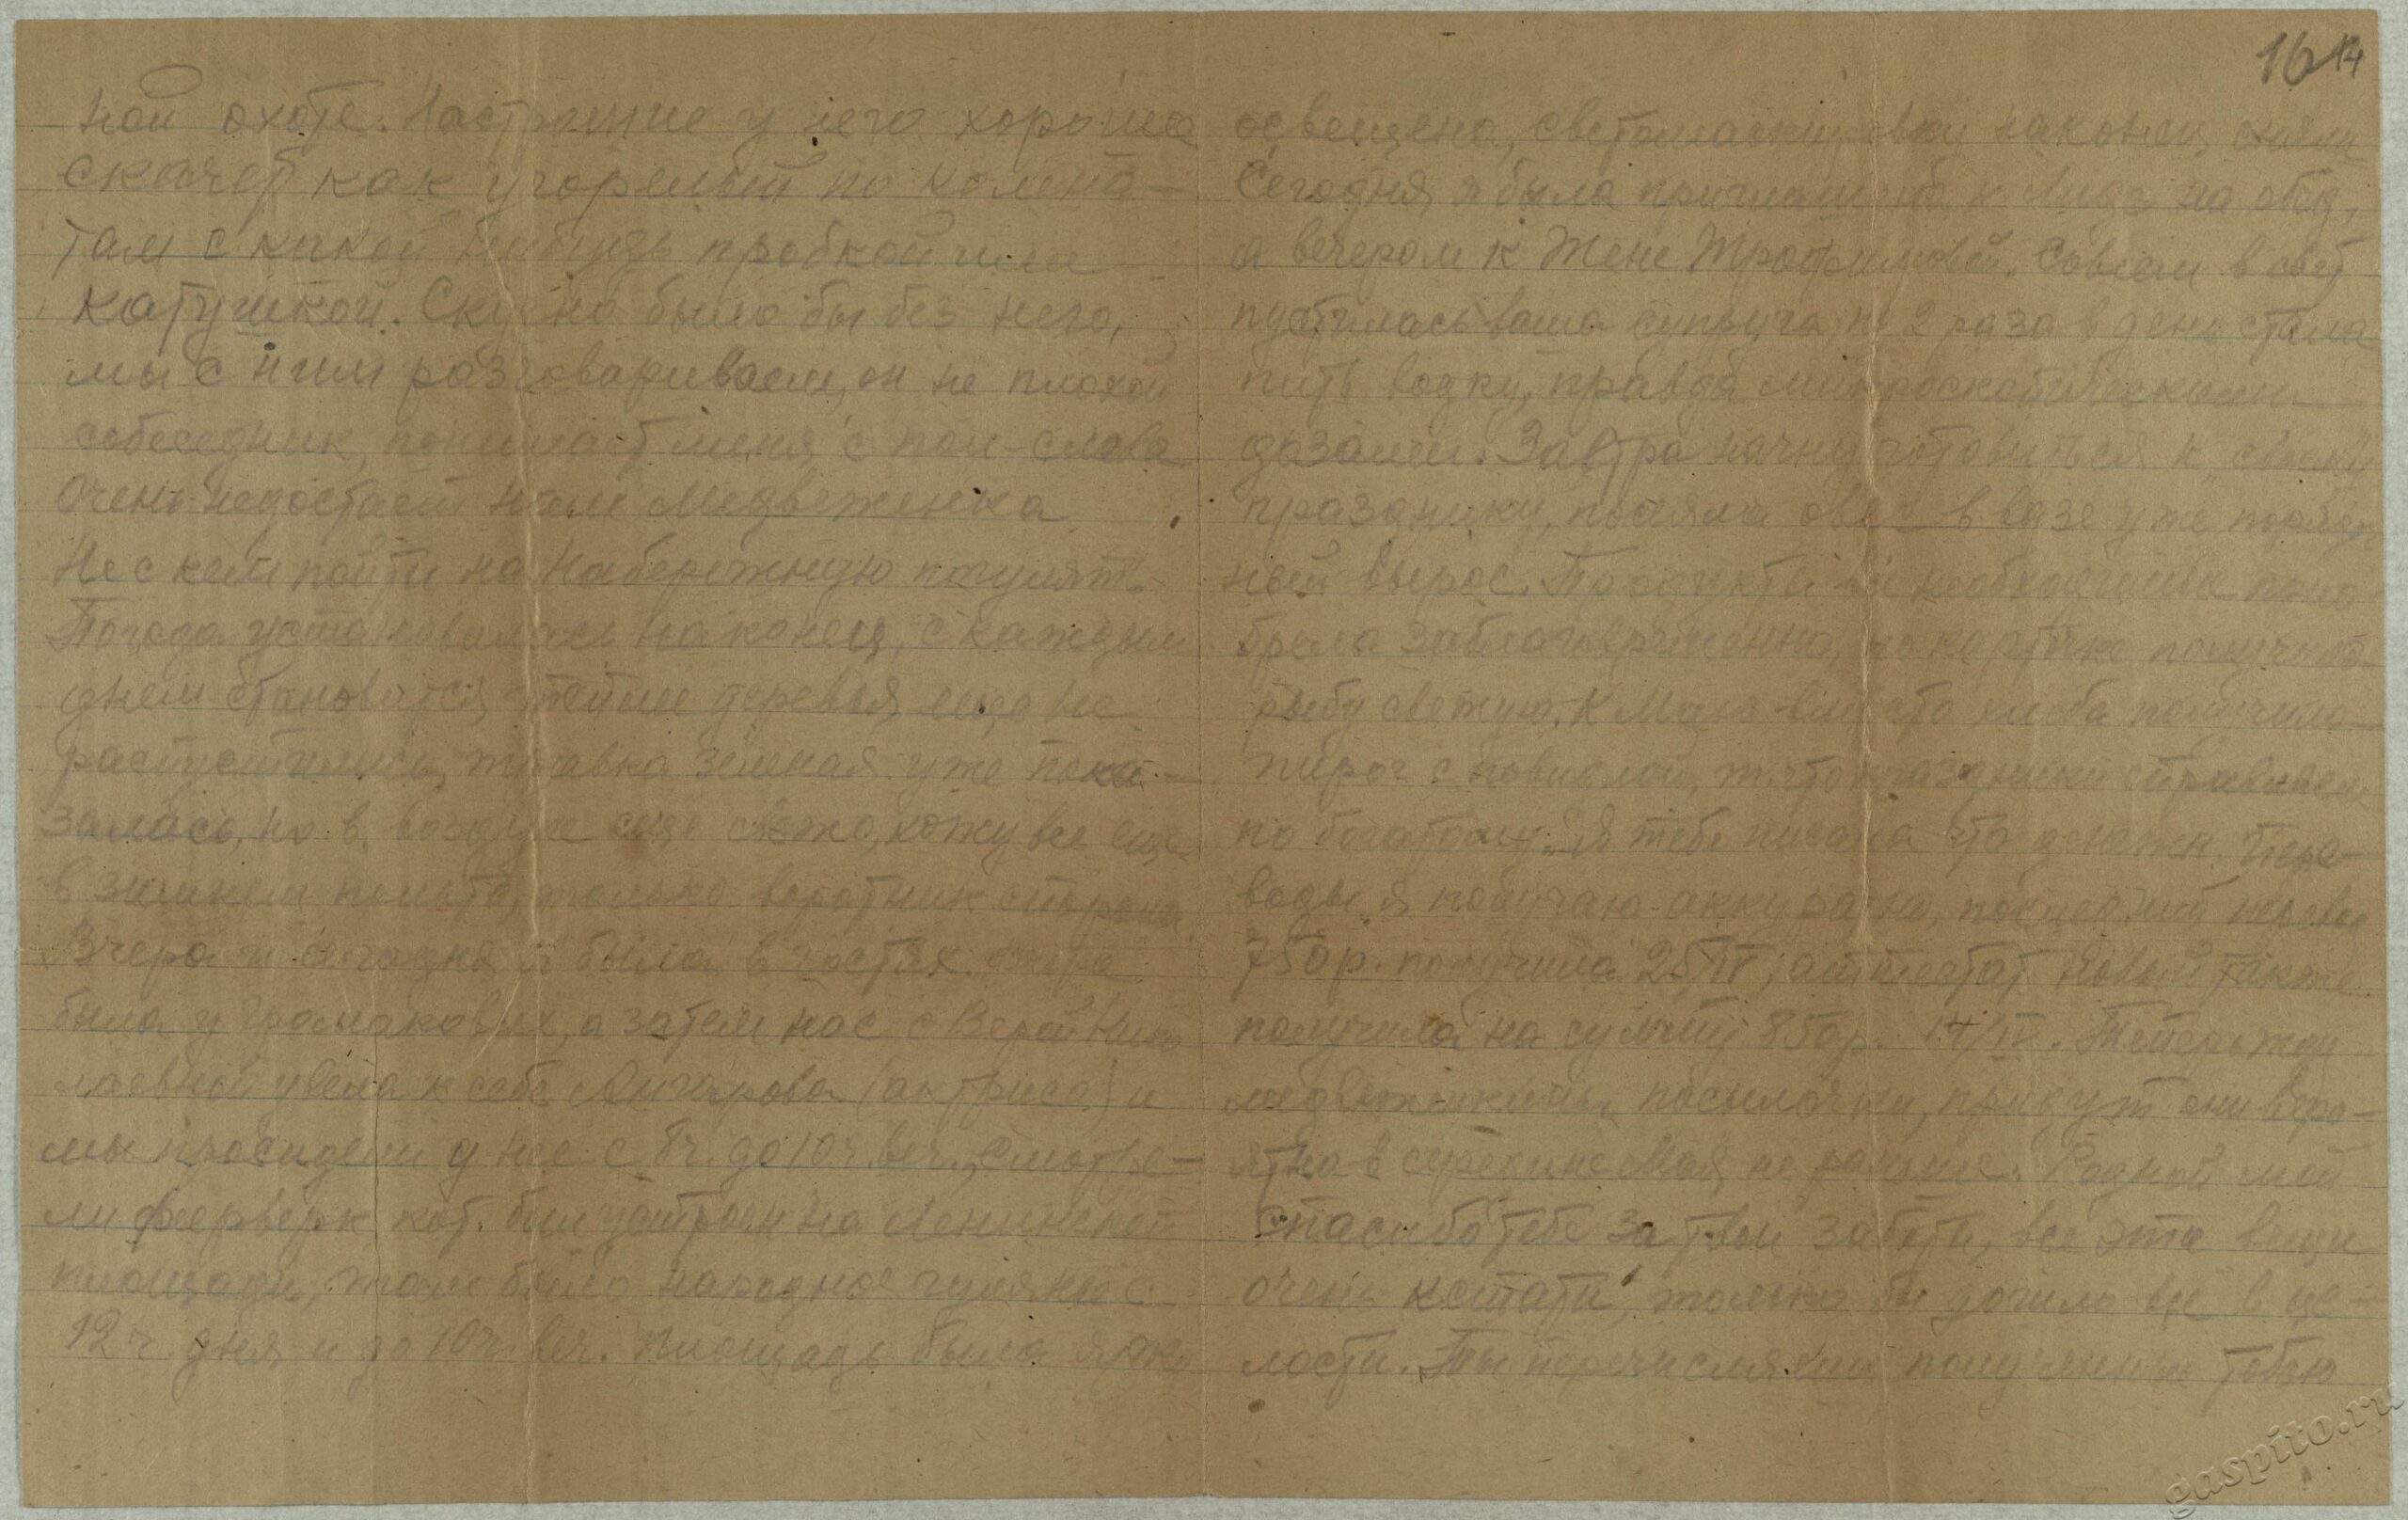 16 14
ной охоте. Настроение у него хорошее
скачет как угорелый по комна-
там с какой нибудь пробкой или
катушкой. Скучно было бы без него,
мы с ним разговариваем, он не плохой
собеседник, понимает меня с пол-слова
Очень недостает нам Медвеженка
Не с кем пойти на Набережную погулять.
Погода установилась наконец, с каждым
днем становится теплее деревья еще не
распустились, травка зеленая уже пока-
залась, но в воздухе еще свежо, хожу все еще
в зимнем пальто, только воротник
Вчера и сегодня я была в гостях. вчера
была у Громаковых, а затем нас с Верой Нико
лаевной увела к себе Ангарова (актриса) и
мы просидели у нее с 6ч. до 10 ч. веч., смотре-
ли фейерверк кот. был устроен на Ленинской
площади, там было народное гулянье с
12 ч. дня и до 10 ч. веч. Площадь была ярко
освещена, светомаскировку наконец сняли
Сегодня я была приглашена к Лиде на обед,
а вечером к Жене Трофимовой. Совсем в свет
пустилась ваша супруга, по 2 раза в день стала
пить водку, правда микроскопическими
дозами. Завтра начну готовиться к своему
празднику, посеяла овес в вазе уже поряд
ный вырос. Продукты все необходимые прио
брела заблаговременно, на карточке получила
рыбу свежую. К Маю вместо хлеба получила
пирог с повидлой, т. что праздники справляем
по богатому. Я тебе писала что должен. Пере-
воды я получаю аккуратно, последний перевод
750 р. получила 25/IV, аттестат новый также
получила на сумму 850 р. 14/IV. Теперь жду
медвежкины посылочки, придут они веро-
ятно в середине Мая не раньше. Родной мой
спасибо тебе за твои заботы, все эти вещи
очень кстати, только бы дошло все в це-
лости. Ты перечислял мне полученные тобою
gaspito.ru